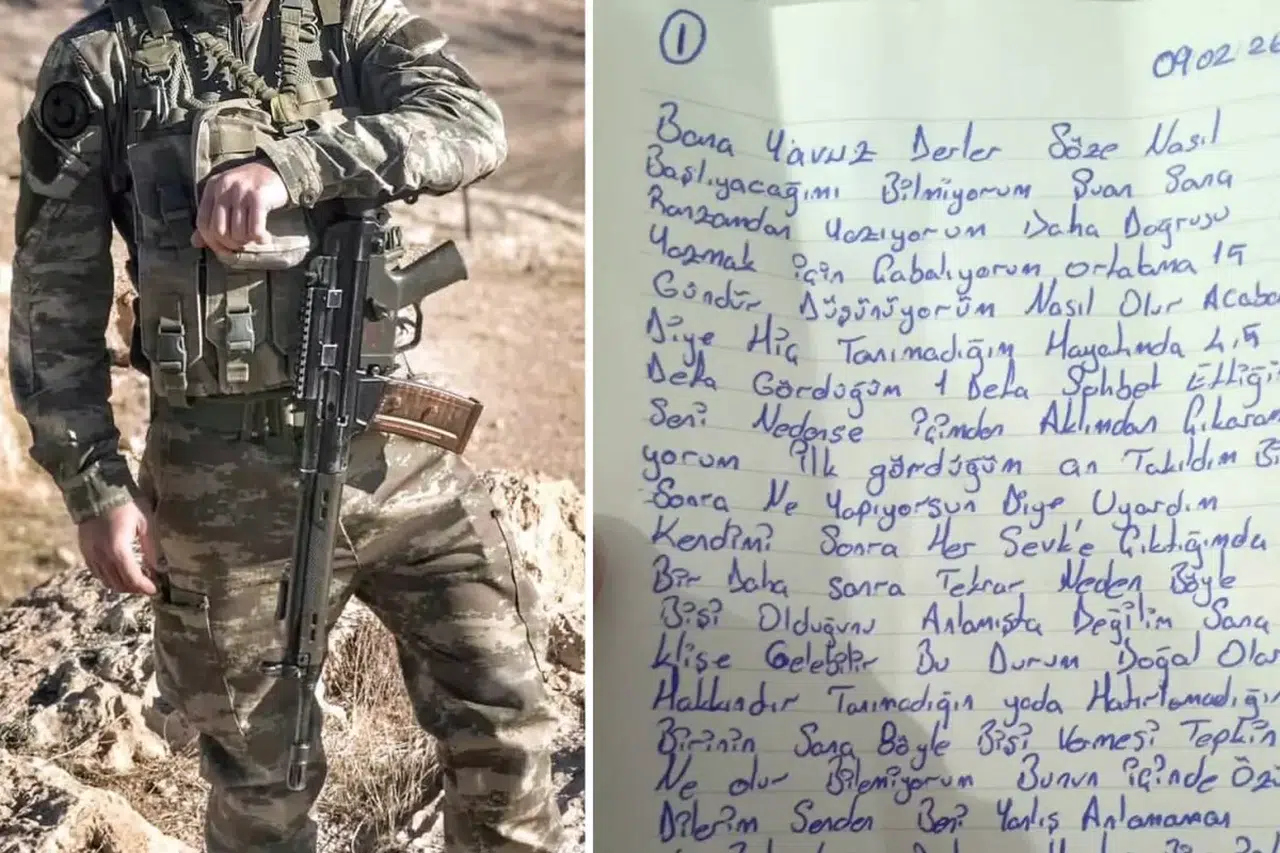 1
09.02.26
Bana Yavuz Derler Söze Nasıl
Başlıyacağımı Bilmiyorum Şuan Sana
Ranzamdan Yazıyorum Daha Doğrusu
Yazmak için Çabalıyorum ortalama 15
Gündür Düşünüyorüm Nasıl Olur Acaba
Diye Hiç Tanımadığım Hayatımda 4,5
Defa Gördüğüm 1 Defa Sohbet Ettiği
Seni Nedense içimden Aklımdan Çıkaram
yorum ilk gördüğüm an Takıldım Bi
Sonra Ne Yapıyorsun Diye Uyardım
Kendimi Sonra Her Sevk'e Çıktığımda
Bir Daha sonra Tekrar Neden Böyle
Bişi Olduğunu Anlamışta Değilim Sana
Klişe Gelebilir Bu Durum Doğal Olar
Hakkındır Tanımadığın yada Hatırlamadığın
Birinin Sana Böyle Bişi Vermesi Tepkin
Ne olur Bilemiyorum Bunun içinde Özü
Dilerim Senden Beni Yanlış Anlamaman